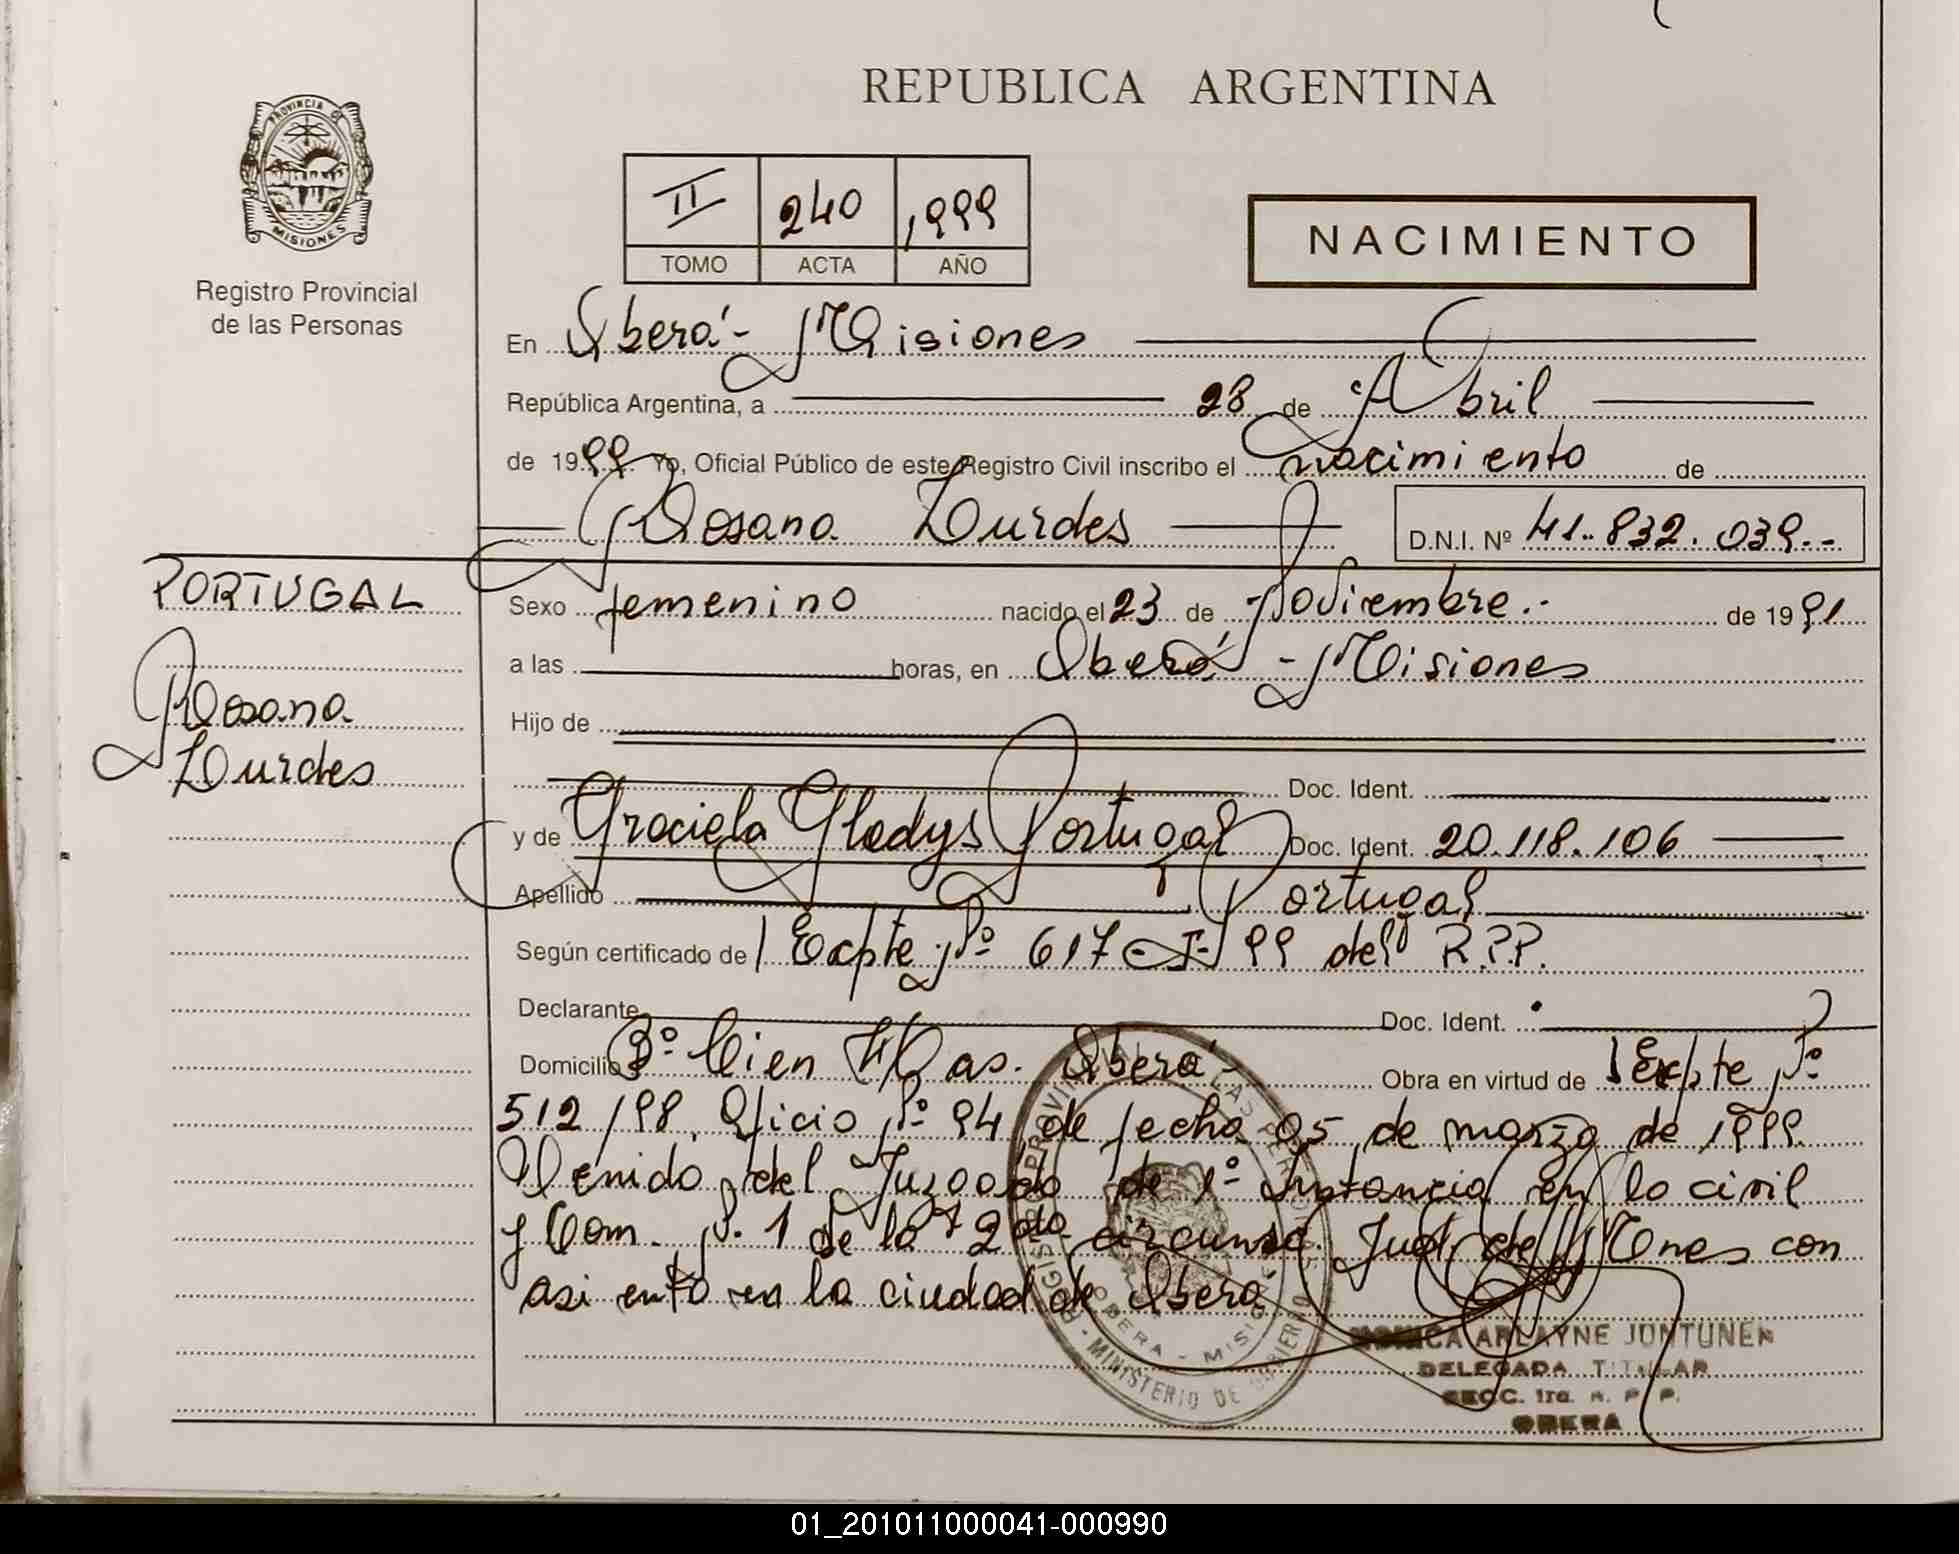 REPUBLICA ARGENTINA
PROVINCIA DE
MISIONES
Registro Provincial
de las Personas
II 240 1999
TOMO ACTA AÑO
NACIMIENTO
En Oberá - Misiones
República Argentina, a 28 de Abril
de 1999 Yo, Oficial Público de este Registro Civil inscribo el nacimiento de
Rosana Lurdes D.N.I. Nº 41.832.039.-
PORTUGAL
Rosana
Lurdes
Sexo femenino nacido el 23 de Noviembre.- de 1991
a las horas, en Oberá - Misiones
Hijo de
Doc. Ident.
y de Graciela Gladys Portugal Doc. Ident. 20.118.106
Apellido Portugal
Según certificado de Expte Nº 617 99 del R.P.P.
Declarante Doc. Ident.
Domicilio Oberá Obra en virtud de Expte Nº
512/98, Oficio Nº 94 de fecha 05 de marzo de 1999
Venido del Juzgado de 1º Instancia en lo civil
y Com. Nº 1 de la 2da circunsc. Jud. de Mnes con
asiento en la ciudad de Oberá
MINISTERIO DE GOBIERNO
OBERA - MISIONES
MONICA ARLAYNE JUNTUNEN
DELEGADA TITULAR
SECC. 1ra. R. P. P.
OBERA
01_201011000041-000990